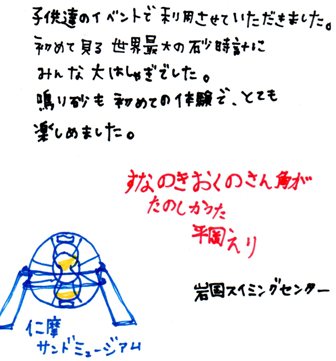 子供達のイベントで利用させていただきました。
初めて見る世界最大の砂時計に
みんな大はしゃぎでした。
鳴り砂も初めての体験で、とても
楽しめました。
すなのきおくのさん角が
たのしかった
平岡えり
岩国スイミングセンター
仁摩
サンドミュージアム